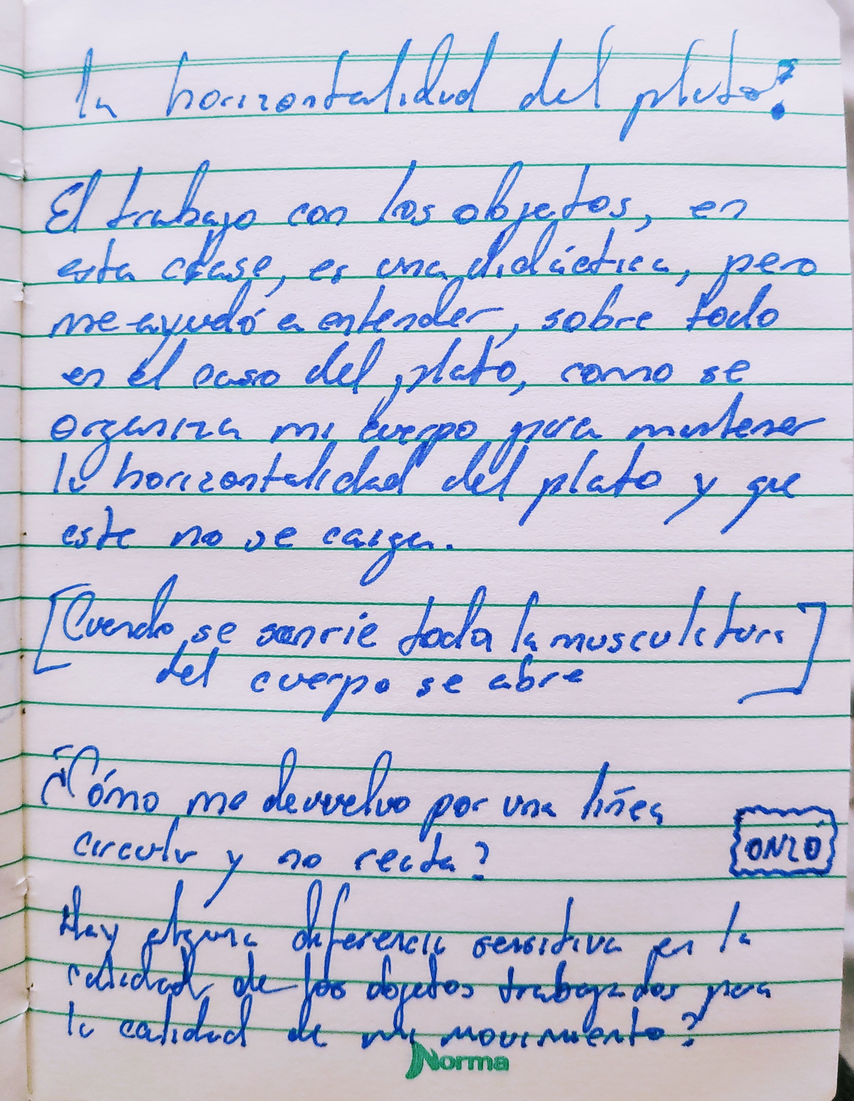 la horizontalidad del plato?
El trabajo con los objetos, en
esta clase, es una didáctica, pero
me ayudó a entender, sobre todo
en el caso del plato, como se
organiza mi cuerpo para mantener
la horizontalidad del plato y que
este no se caiga.
[Cuando se sonrie toda la musculatura
del cuerpo se abre]
¿Cómo me devuelvo por una línea
circular y no recta?
ONZO
Hay alguna diferencia sensitiva en la
calidad de los objetos trabajados para
la calidad de mi movimiento?
Norma